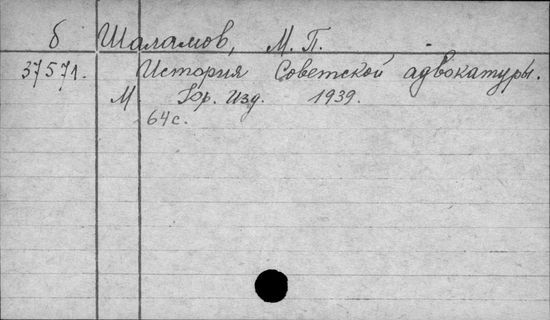 б Шаламов, М. П.
37571. История Советской адвокатуры.
М Юр. Изд. 1939.
64 с.